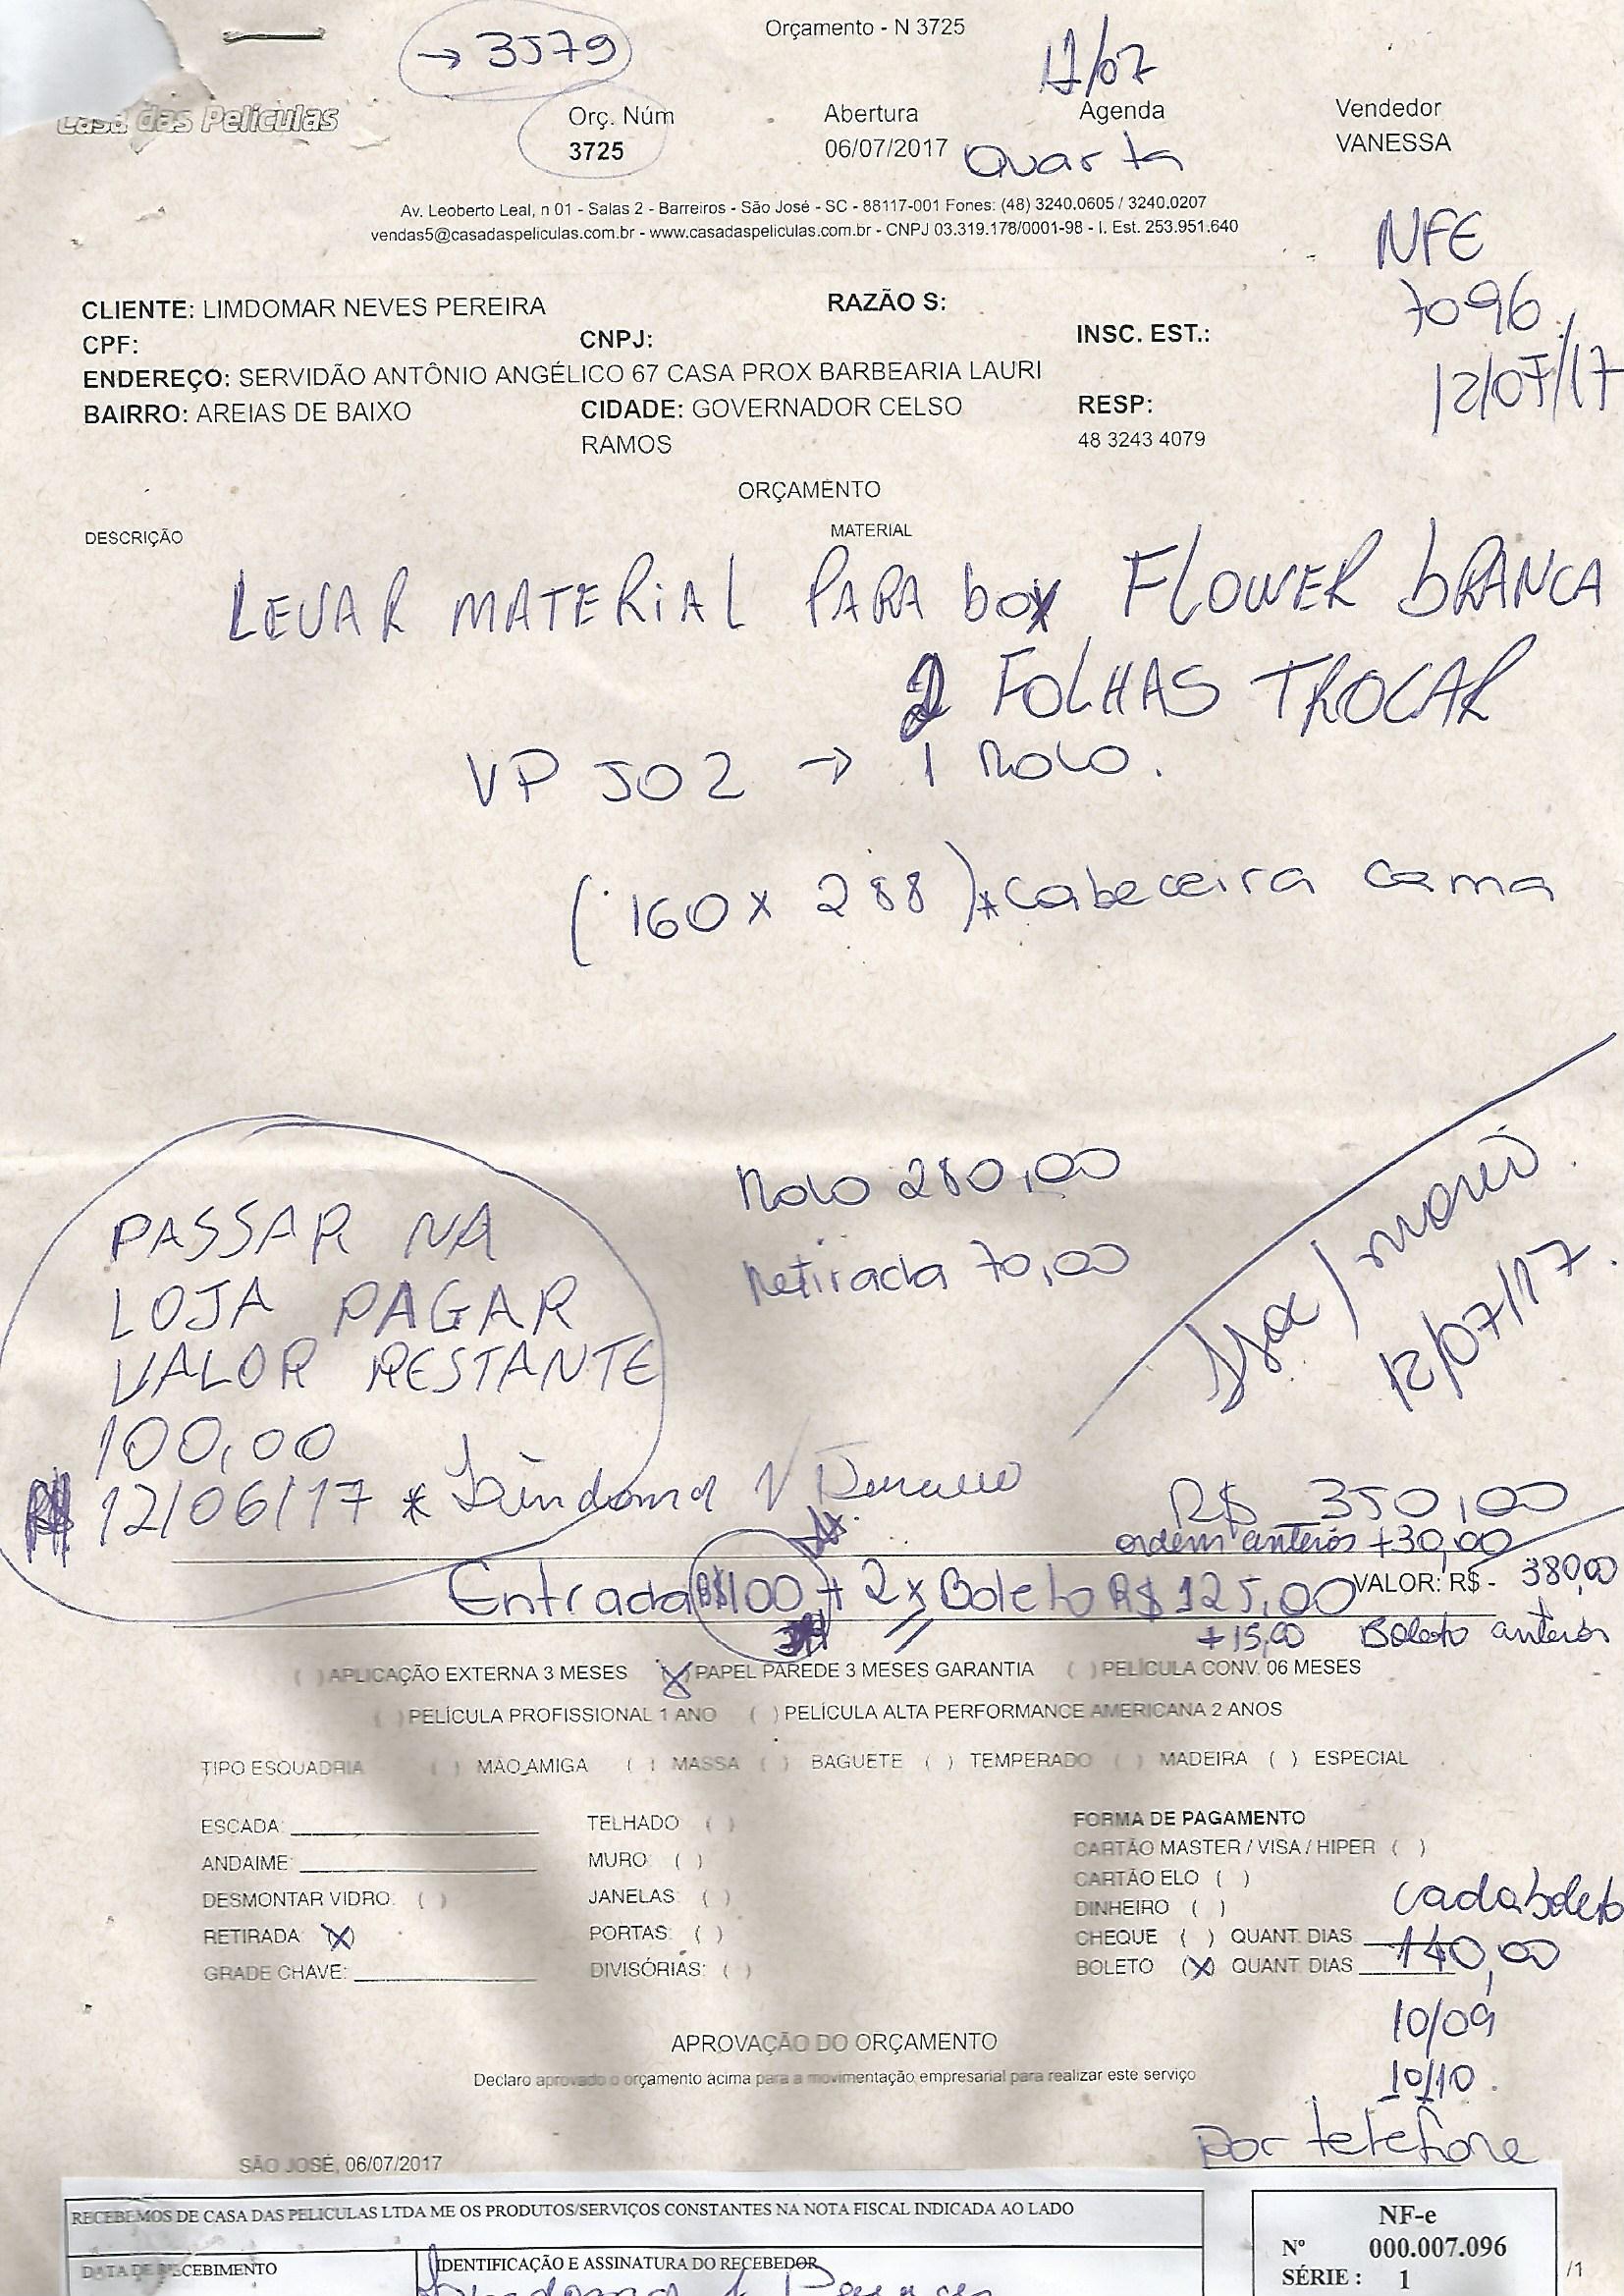 Orçamento - N 3725
→ 3579
17/07
Casa das Películas
Orç. Núm
3725
Abertura
06/07/2017
Agenda
Quarta
Vendedor
VANESSA
Av. Leoberto Leal, n 01 - Salas 2 - Barreiros - São José - SC - 88117-001 Fones: (48) 3240.0605 / 3240.0207
vendas5@casadaspeliculas.com.br - www.casadaspeliculas.com.br - CNPJ 03.319.178/0001-98 - I. Est. 253.951.640
NFE
7096
12/07/17
CLIENTE: LIMDOMAR NEVES PEREIRA RAZÃO S:
CPF: CNPJ: INSC. EST.:
ENDEREÇO: SERVIDÃO ANTÔNIO ANGÉLICO 67 CASA PROX BARBEARIA LAURI
BAIRRO: AREIAS DE BAIXO CIDADE: GOVERNADOR CELSO RESP:
RAMOS 48 3243 4079
ORÇAMENTO
DESCRIÇÃO MATERIAL
LEVAR MATERIAL PARA box FLOWER bRANCA
2 FOLHAS TROCAR
VP 502 → 1 Rolo.
(160 x 288)*cabeceira cama
Rolo 280,00
Retirada 70,00
PASSAR NA
LOJA PAGAR
VALOR RESTANTE
100,00
12/06/17 *
12/07/17.
R$ 350,00
ordem anterior +30,00
Entrada R$100 + 2x Boleto R$ 125,00 VALOR: R$ - 380,00
+15,00 Boleto anterior
( ) APLICAÇÃO EXTERNA 3 MESES (X) PAPEL PAREDE 3 MESES GARANTIA ( ) PELÍCULA CONV. 06 MESES
( ) PELÍCULA PROFISSIONAL 1 ANO ( ) PELÍCULA ALTA PERFORMANCE AMERICANA 2 ANOS
TIPO ESQUADRIA ( ) MÃO AMIGA ( ) MASSA ( ) BAGUETE ( ) TEMPERADO ( ) MADEIRA ( ) ESPECIAL
ESCADA: TELHADO ( ) FORMA DE PAGAMENTO
ANDAIME: MURO: ( ) CARTÃO MASTER / VISA / HIPER ( )
DESMONTAR VIDRO: ( ) JANELAS: ( ) CARTÃO ELO ( )
RETIRADA: (X) PORTAS: ( ) DINHEIRO ( )
GRADE CHAVE: DIVISÓRIAS: ( ) CHEQUE ( ) QUANT. DIAS
BOLETO (X) QUANT DIAS
cada boleto
140,00
10/09
10/10.
APROVAÇÃO DO ORÇAMENTO
Declaro aprovado o orçamento acima para a movimentação empresarial para realizar este serviço
por telefone
SÃO JOSÉ, 06/07/2017
RECEBEMOS DE CASA DAS PELICULAS LTDA ME OS PRODUTOS/SERVIÇOS CONSTANTES NA NOTA FISCAL INDICADA AO LADO
DATA DE RECEBIMENTO IDENTIFICAÇÃO E ASSINATURA DO RECEBEDOR
NF-e
Nº 000.007.096
SÉRIE : 1
/1